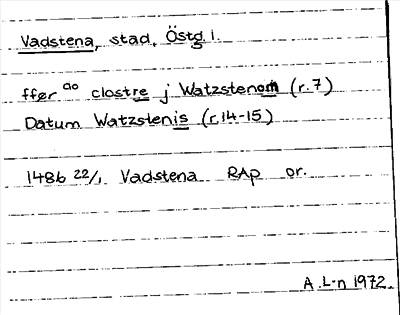 Vadstena, stad, Östg. l.
ffør ᵃᵒ clostre j Watzstenom (r. 7)
Datum Watzstenis (r. 14-15)
1486 22/1 Vadstena RAp or.
A. L-n 1972.